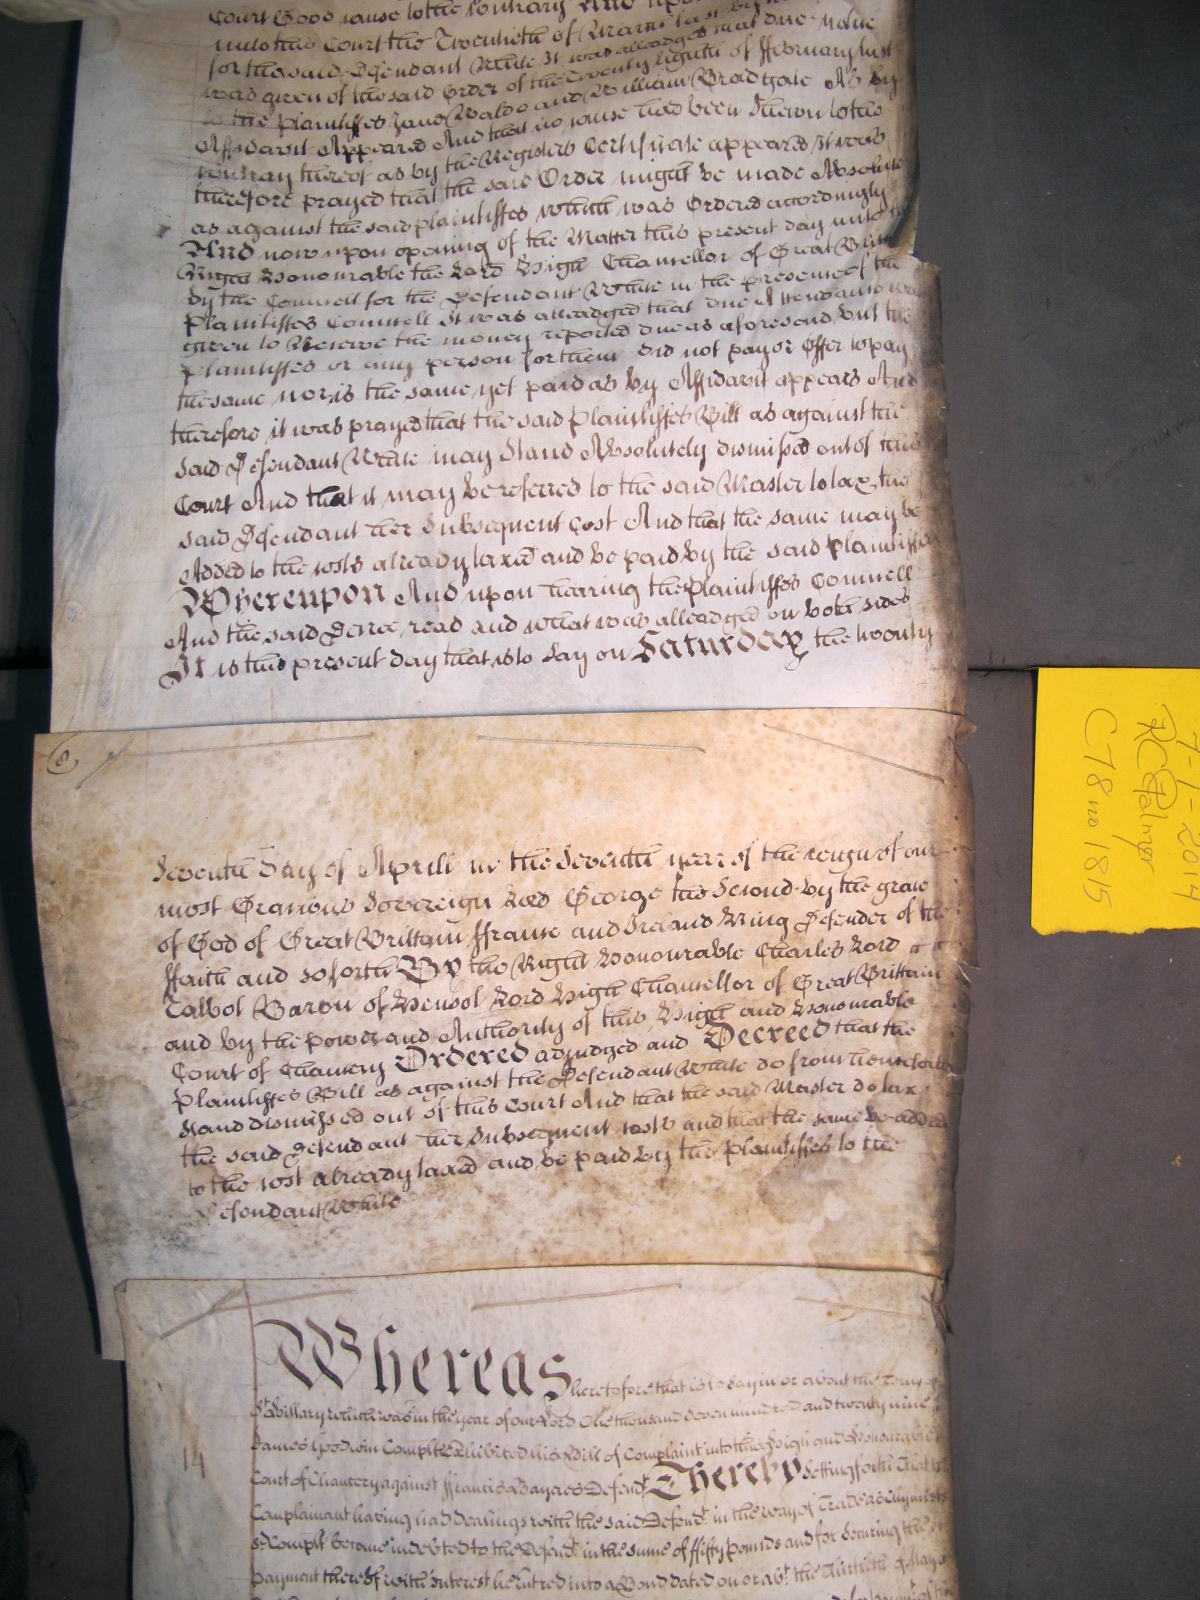 Court Good cause to the Contrary And upon
unto this Court the Twentieth of March last by
for the said Defendant White It was alleadged that due Notice
was given of the said Order of the Twenty Eighth of ffebruary last
to the Plaintiffes Jane Waldo and William Broadgate As by
Affidavit Appeared And that no cause had been Shewn to the
Contrary thereof as by the Registers Certificate appeared It was
therefore prayed that the said Order might be made Absolute
as against the said plaintiffes which was Ordered accordingly
And now upon opening of the Matter this present day unto the
Right Honourable the Lord High Chancellor of Great Brittain
by the Councell for the Defendant White in the presence of the
Plaintiffes Councell It was alleadged that due Attendance was
given to Receive the money reported due as aforesaid but the
Plaintiffes or any person for them did not pay or Offer to pay
the same nor is the same yet paid as by Affidavit appears And
therefore it was prayed that the said Plaintiffes Bill as against the
said Defendant White may Stand Absolutely dismissed out of this
Court And that it may be referred to the said Master to tax the
said Defendant her Subsequent Cost And that the same may be
Added to the costs already taxed and be paid by the said Plaintiffes
Whereupon And upon hearing the Plaintiffes Councell
And the said Decree read and what was alleadged on both sides
It is this present day that is to Say on Saturday the twenty
8
Seventh Day of Aprill in the Seventh year of the reign of our
most Gracious Sovereign Lord George the Second by the grace
of God of Great Brittain ffrance and Ireland King Defender of the
ffaith and so forth By the Right Honourable Charles Lord
Talbot Baron of Hensol Lord High Chancellor of Great Brittain
and by the Power and Authority of this High and Honourable
Court of Chancery Ordered adjudged and Decreed that the
Plaintiffes Bill as against the Defendant White do from henceforth
stand dismissed out of this Court And that the said Master do tax
the said Defendant her Subsequent costs and that the same be added
to the cost already taxed and be paid by the Plaintiffes to the
Defendant White
Whereas heretofore that is to Say in or about the Term of
St. Hillary which was in the year of our Lord One thousand Seven hundred and twenty nine
James Goodwin Complt Exhibited his Bill of Complaint into this High and Honourable
14
Court of Chancery against ffrancis Bayares Defendt Thereby Setting forth That the
Complainant having had dealings with the said Defendt in the way of Trade as Chymists
sd Complt became indebted to the Defendt in the sume of ffifty pounds and for Securing the
payment thereof with Interest he entred into a Bond dated on or abt the Thirtieth of May
7-1-2014
RC Palmer
C78 no 1815